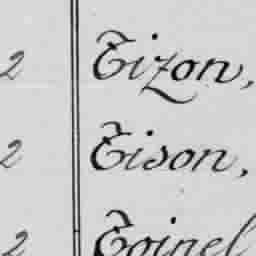 2 Tizon,
2 Tison,
2 Toinel